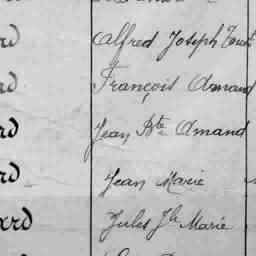 rd Alfred Joseph
rd François Armand
rd Jean Bte Amand
rd Jean Marie
xrd Jules Jh Marie